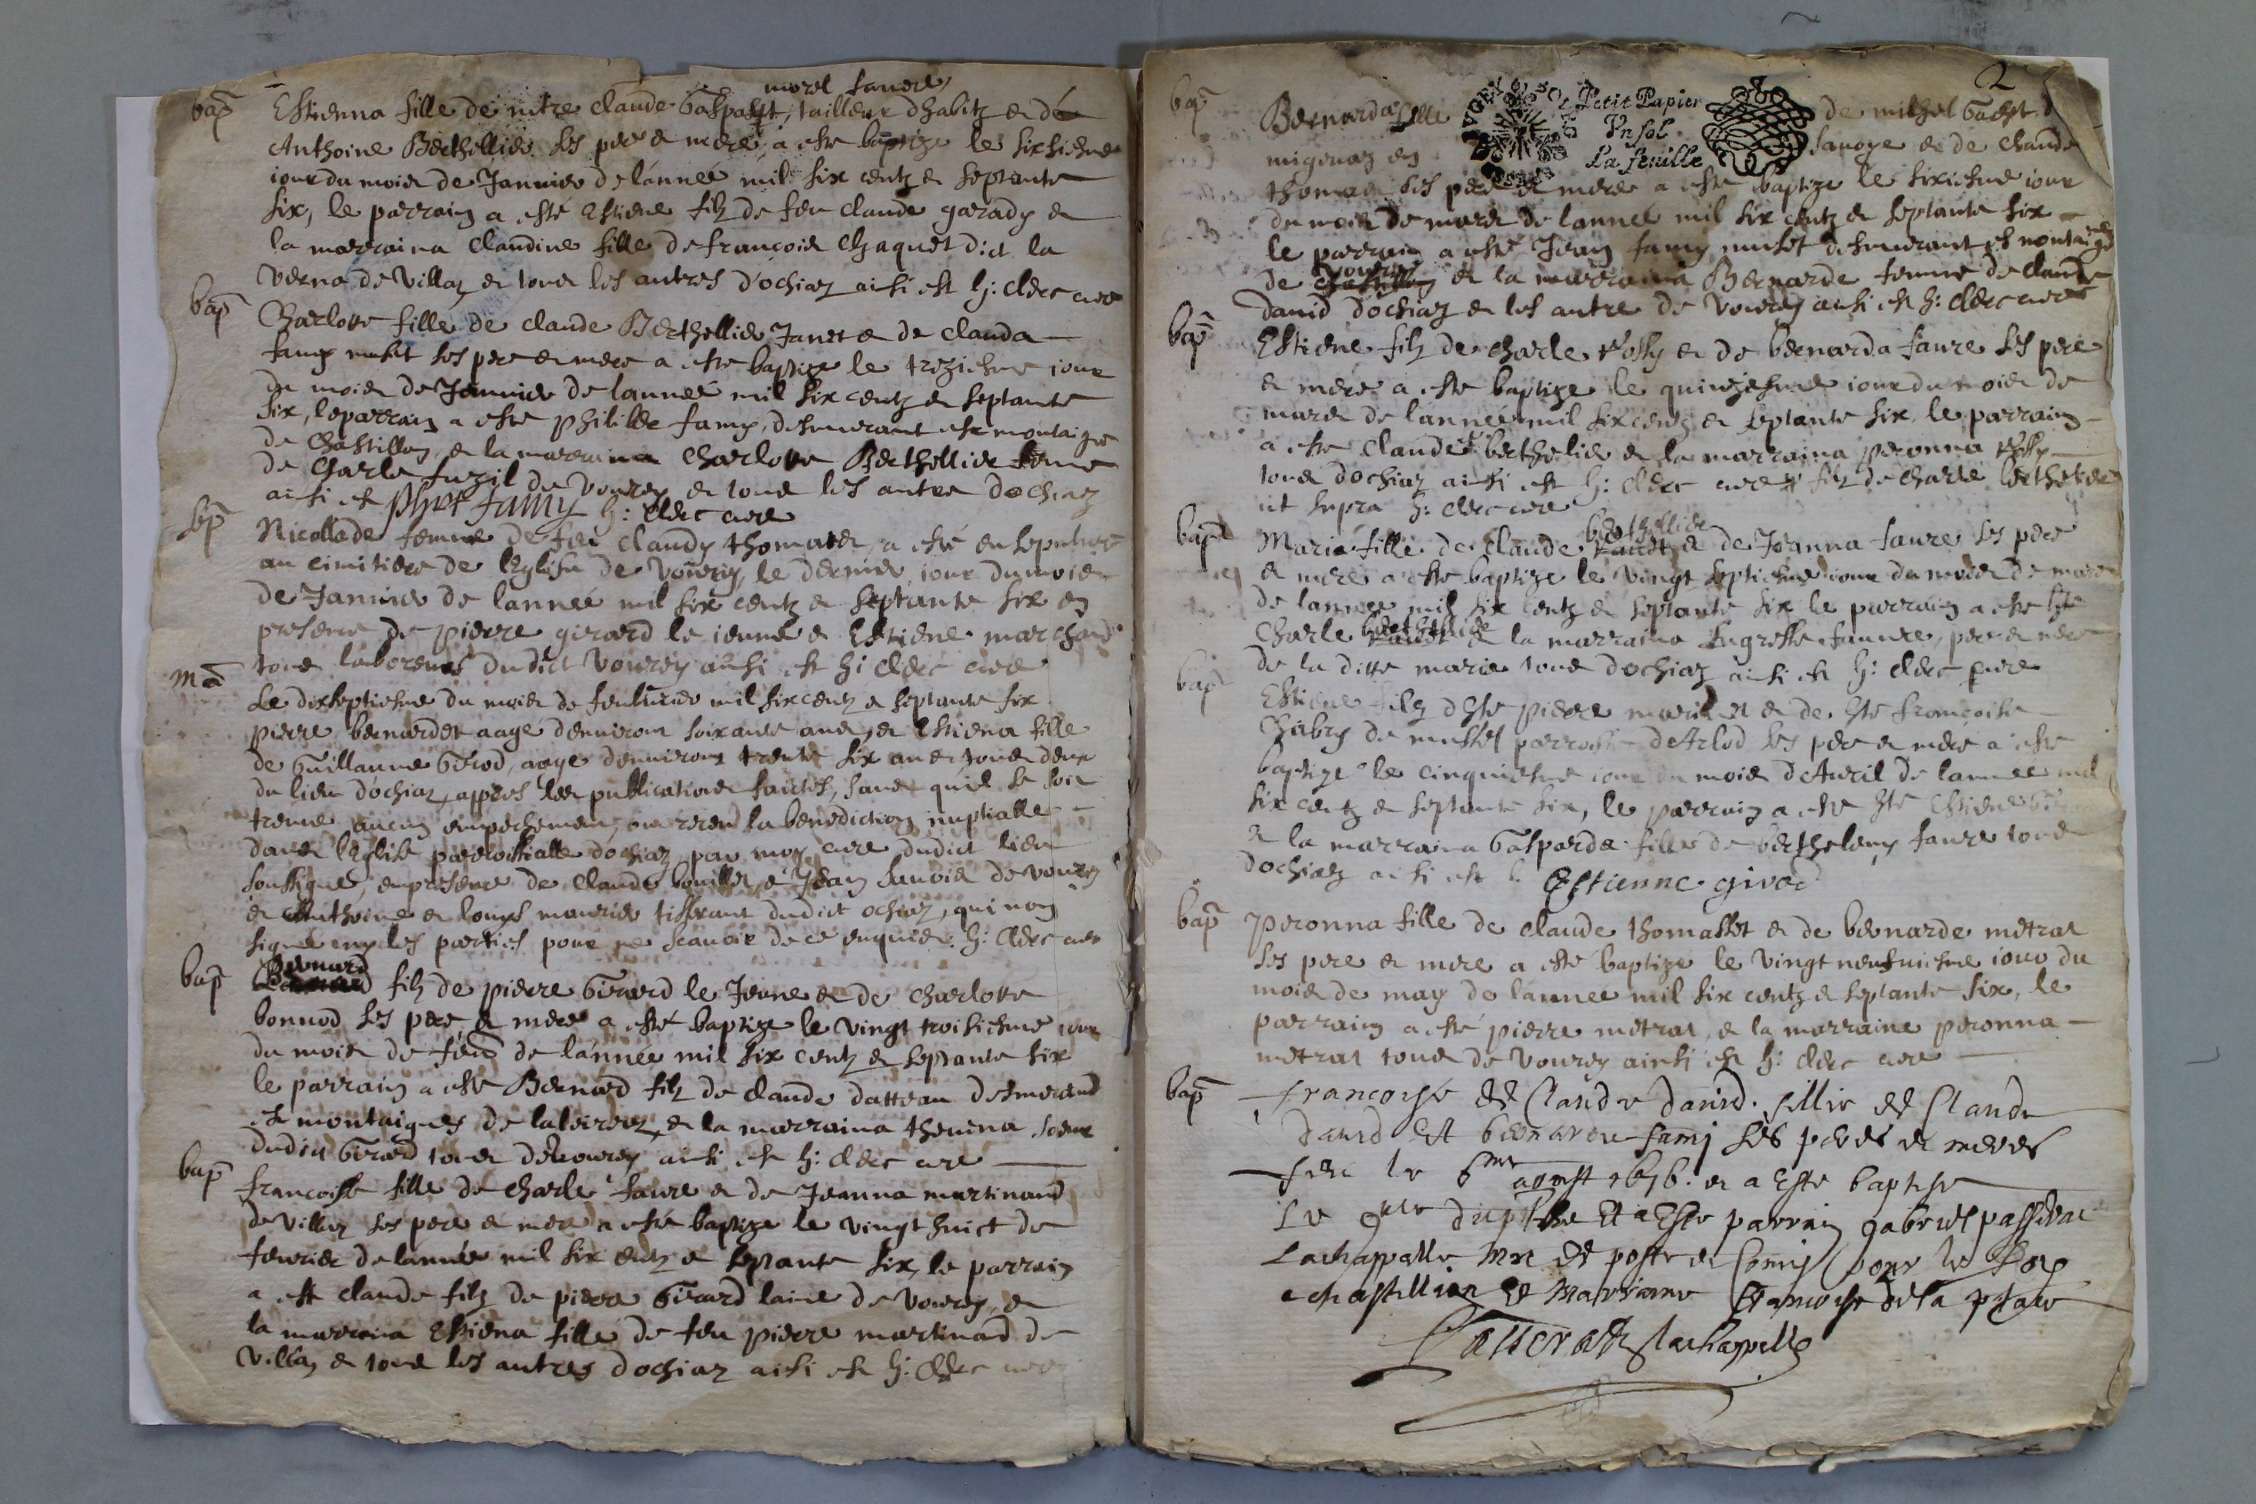 morel faure
bap Estienna fille de mtre claude Gaspard, tailleur dhabitz et de
Anthoine Berthellier ses pere et mere, a este baptize le sixsiesme
iour du mois de Januier de lannee mil six centz et septante
six, le parrain a esté Estiene filz de feu claude garady et
la marraina claudine fille de francois Chaquet dict la
verna de Villaz et tous les autres d'ochiaz ainsi est h: clerc cure
bap Charlotte fille de claude Berthellier Janet et de clauda
famy muset ses pere et mere a este baptize le treziesme iour
du mois de Januier de lanneé mil six centz et septante
six, le parrain a este philibbe famy, demeurant es montaigne
de Chastillon, et la marraina Charlotte Berthellier feme
de Charle fuzil de Vouvrey et tous les autre dochiaz
ainsi est phet famy h: clerc cure
sep Nicollade femme de feu claudy thomasset, a esté ensepulture
au cimitiere de leglise de Vouvrey, le dernier iour du mois
de Januier de lanneé mil six centz et septante six en
presence de pierre girard le ieune et Estiene marchand
tous laboreurs dudict Vouvrey ainsi est h: clerc cure
Ma Le dixseptiesme du mois de feubvrier mil six centz et septante six
pierre bernardet aagé denuiron soixante ans, et Estiena fille
de Guillaume Girod, aage denuiron trente six ans tous deux
du lieu dochiaz, appres les publications faictes, sans quil se soit
treuue aucun empechement, ont receu la benediction nuptialle
dans leglise parrossialle dochiaz par moy cure dudict lieu
soussigné, en presence de claude bouillet et Jean sauoie de vouvrey
et Anthoine et louys maurier tisserant dudict ochiaz, qui nont
signé ny les parties pour ne scauoir de ce enquis. h: clerc cure
bap Bernard filz de pierre Girard le Jeune et de Charlotte
bonnod ses pere et mere a esté baptize le vingt troisiesme iour
du mois de feur de lannée mil six centz et septante six
le parrain a este Bernard filz de claude dutteau demeurant
es montaignes de laleireiz, et la marraina thouina soeur
dudict Girard tous de vouvrey ainsi est h: clerc cure
bap francoise fille de Charle faure et de Jeanna martinand
de Villaz ses pere et mere a esté baptize le vingt huict de
feurier de lannée mil six centz et septante six, le parrain
a este claude filz de pierre Girard laine de vouvrey, et
la marraina Estiena fille de feu pierre martinand de
Villaz et tous les autres dochiaz ainsi est h: clerc cure
2
Petit Papier
Vn sol
La feuille
bap Bernarda fille de michel Gachet
migonaz en sauoye et de claude
thomas ses pere et mere a este baptize le sixiesme iour
du mois de mars de lanneé mil six centz et septante six
le parrain a este Jean famy muset demeurant es montaignes
de vouvrey et la marraina Bernarde femme de claude
dauid dochiaz et les autre de vouvrey ainsi est h: clerc cure
bap Estiene filz de charle rossy et de bernarda faure ses pere
et mere a este baptize le quinziesme iour du mois de
mars de lannée mil six centz et septante six, le parrain
a este claude berthelier et la marraina peronna rossy
tous dochiaz ainsi est h: clerc cure filz de charle berthelier
ut supra h: clerc cure
bap Marie fille de claude berthellier et de Jeanna faure ses pere
et mere a este baptize le vingt septiesme iour du mois de mars
de lannee mil six centz et septante six le parrain a este hte
Charle berthellier et la marraina faure, pere et mere
de la ditte marie tous dochiaz ainsi est h: clerc cure
bap Estiene filz dhte pierre marinet et de hte francoise
Chabry de mussel parroisse dArlod ses pere et mere a este
baptize le cinquiesme iour du mois dAuril de lannee mil
six centz et septante six, le parrain a este hte Estiene
et la marraina Gasparde fille de berthelemy faure tous
dochiaz ainsi est Estienne girod
bap Peronna fille de claude thomasset et de bernarde metral
ses pere et mere a esté baptize le vingt neufuiesme iour du
mois de may de lannee mil six centz et septante six, le
parrain a esté pierre metral, et la marraine peronna
metral tous de vouvrey ainsi est h: clerc cure
bap francoise de Claude dauid. fillie de Claude
dauid et bernarde famy ses peres et meres
nee le 6me aoust 1676. et a este baptise
le 9me dudit et a este parrain gabriel passerat
Lachappelle mre de poste et Comis pour le Roy
a chastillion et marraine francoise de la place
Passerat Lachappelle